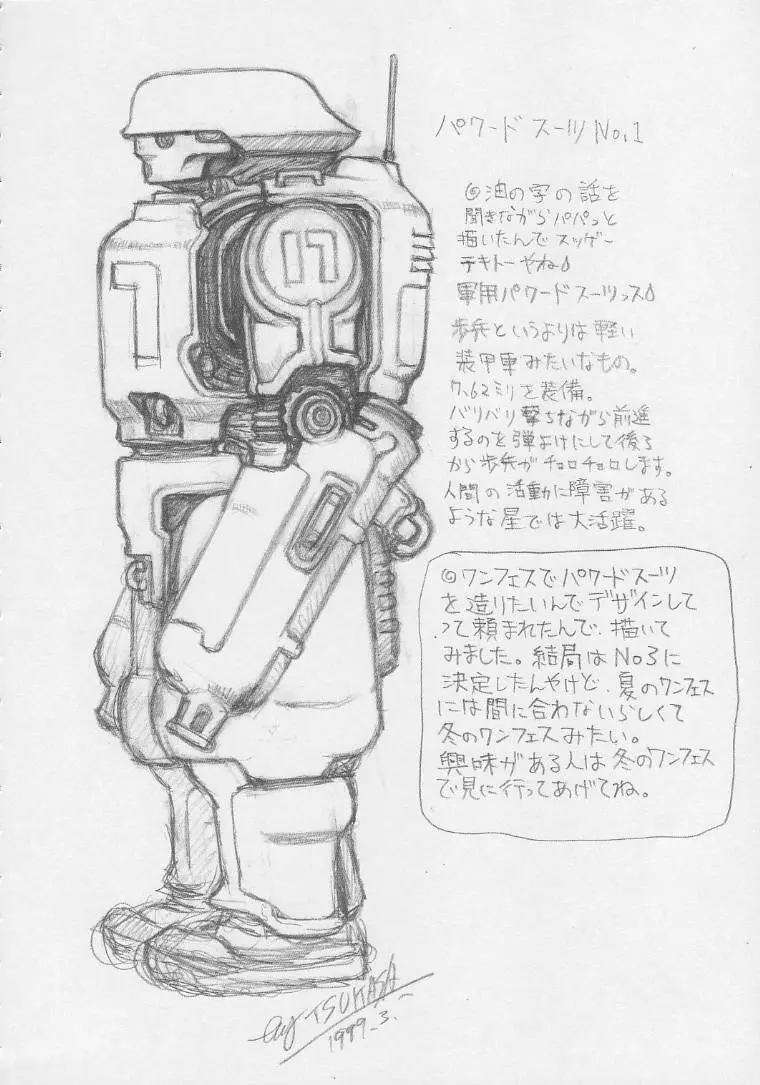 パワード スーツ No.1
◎油の字の話を
聞きながらパパっと
描いたんでスッゲー
テキトーやね♪
軍用パワードスーツっス♪
歩兵というよりは軽い
装甲車みたいなもの。
7.62ミリを装備。
バリバリ撃ちながら前進
するのを弾よけにして後ろ
から歩兵がチョロチョロします。
人間の活動に障害がある
ような星では大活躍。
◎ワンフェスでパワードスーツ
を造りたいんでデザインして
って頼まれたんで、描いて
みました。結局はNo3に
決定したんやけど、夏のワンフェス
には間に合わないらしくて
冬のワンフェスみたい。
興味がある人は冬のワンフェス
で見に行ってあげてね。
17
7
by TSUKASA
1999.3.